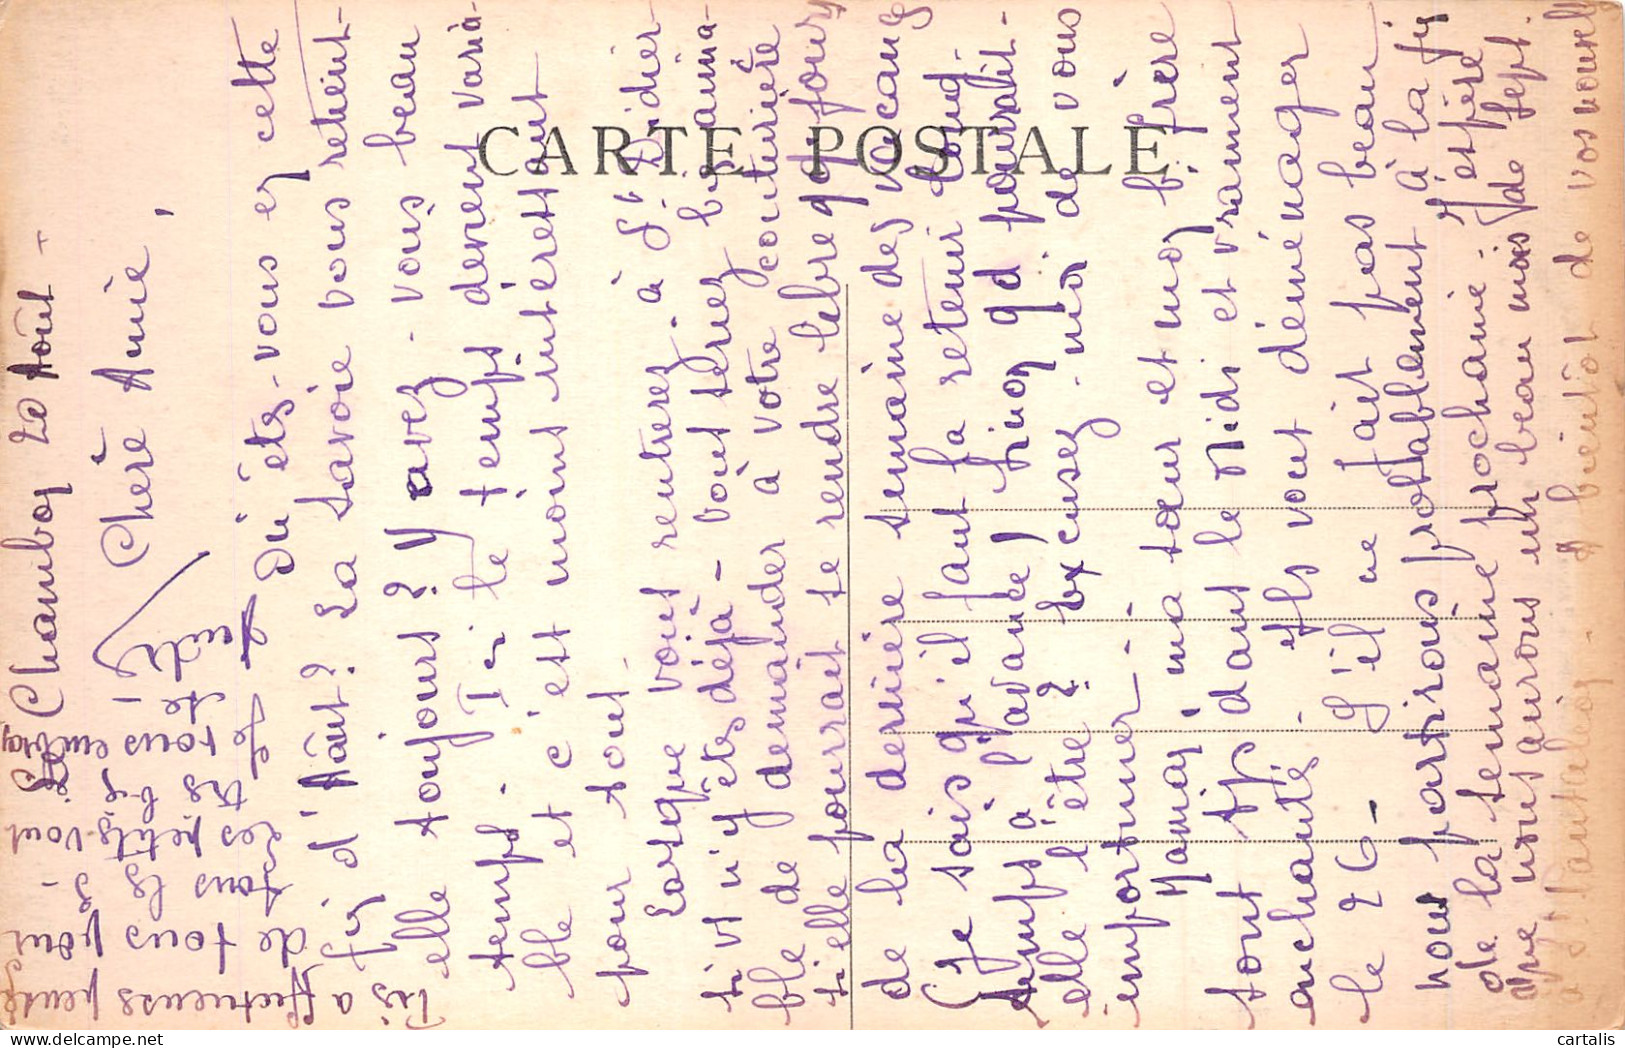 Chambon 20 Août -
Chère Amie,
Où êtes-vous en cette
fin d'Août? La Savoie vous retient-
elle toujours? Y avez-vous beau
temps - Ici le temps devient varia-
ble et c'est moins intéressant
pour tout -
Lorsque vous rentrerez à St Didier
si vs n'y êtes déjà - vous serez bien aima-
ble de demander à votre couturière
si elle pourrait se rendre libre qq jours
de la dernière semaine des vacances
(Je sais qu'il faut la retenir longt-
temps à l'avance) sinon qd pourrait-
elle l'être? Excusez-moi de vous
importuner -
Maman, ma sœur et mon b. frère
sont dans le Midi et vraiment
enchantés - Ils vont déménager
le 26 - S'il ne fait pas beau
nous partirons probablement à la fin
de la semaine prochaine. J'espère
que nous aurons un beau mois de Sept.
à St Pantaléon - A bientôt de vos nouvelles
Très affectueuses pensées
de tous pour
tous les
Les petits vont
très bien
Je vous embrasse
CARTE POSTALE
cartalis
delcampe.net